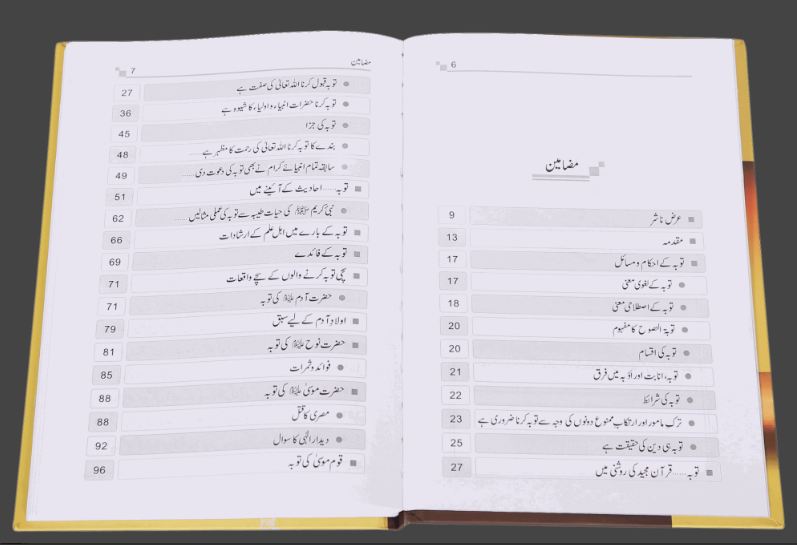 6
مضامین
عرض ناشر 9
مقدمہ 13
توبہ کے احکام و مسائل 17
توبہ کے لغوی معنی 17
توبہ کے اصطلاحی معنی 18
توبۃ النصوح کا مفہوم 20
توبہ کی اقسام 20
توبہ، انابت اور اَوبہ میں فرق 21
توبہ کی شرائط 22
ترک مامور اور ارتکابِ ممنوع دونوں کی وجہ سے توبہ کرنا ضروری ہے 23
توبہ ہی دین کی حقیقت ہے 25
توبہ......قرآن مجید کی روشنی میں 27
مضامین 7
توبہ قبول کرنا اللہ تعالیٰ کی صفت ہے 27
توبہ کرنا حضرات انبیاء و اولیاء کا شیوہ ہے 36
توبہ کی جزا 45
بندے کا توبہ کرنا اللہ تعالیٰ کی رحمت کا مظہر ہے...... 48
سابقہ تمام انبیائے کرام نے بھی توبہ کی دعوت دی...... 49
توبہ......احادیث کے آئینے میں 51
نبی کریم ﷺ کی حیات طیبہ سے توبہ کی عملی مثالیں...... 62
توبہ کے بارے میں اہل علم کے ارشادات 66
توبہ کے فائدے 69
سچی توبہ کرنے والوں کے سچے واقعات 71
حضرت آدم علیہ السلام کی توبہ 71
اولادِ آدم کے لیے سبق 79
حضرت نوح علیہ السلام کی توبہ 81
فوائد و ثمرات 85
حضرت موسیٰ علیہ السلام کی توبہ 88
مصری کا قتل 88
دیدار الٰہی کا سوال 92
قوم موسیٰ کی توبہ 96